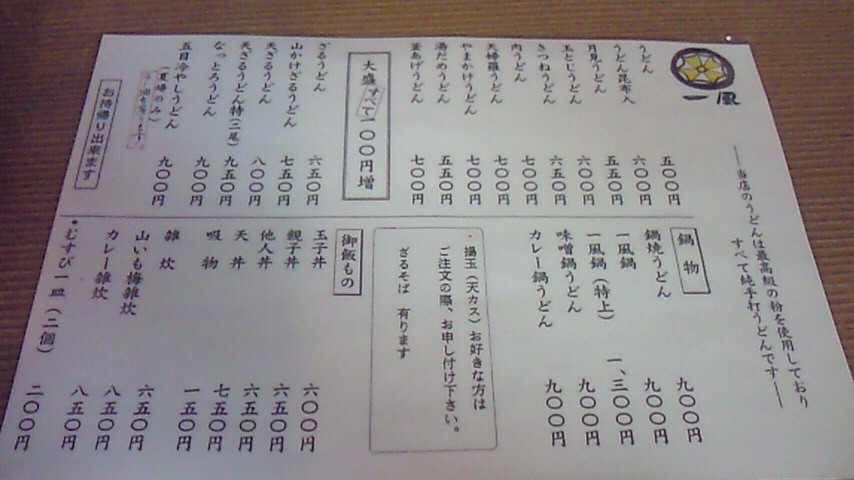 一風
――当店のうどんは最高級の粉を使用しており
すべて純手打うどんです――
うどん 五〇〇円
うどん昆布入 六〇〇円
月見うどん 五五〇円
玉とじうどん 六〇〇円
きつねうどん 六五〇円
肉うどん 七〇〇円
天婦羅うどん 七〇〇円
やまかけうどん 七〇〇円
湯だめうどん 五五〇円
釜あげうどん 七〇〇円
大盛すべて一〇〇円増
ざるうどん 六五〇円
山かけざるうどん 七五〇円
天ざるうどん 八〇〇円
天ざるうどん特(二尾) 九五〇円
なっとろうどん 九〇〇円
五目冷やしうどん 九〇〇円
(夏場のみ)
お持帰り出来ます
鍋物
鍋焼うどん 九〇〇円
一風鍋 九〇〇円
一風鍋(特上) 一、三〇〇円
味噌鍋うどん 九〇〇円
カレー鍋うどん 九〇〇円
揚玉(天カス)お好きな方は
ご注文の際、お申し付け下さい。
ざるそば 有ります
御飯もの
玉子丼 六〇〇円
親子丼 六五〇円
他人丼 六五〇円
天丼 七五〇円
吸物 一五〇円
雑炊 六五〇円
山いも梅雑炊 八五〇円
カレー雑炊 八五〇円
むすび一皿(二個) 二〇〇円